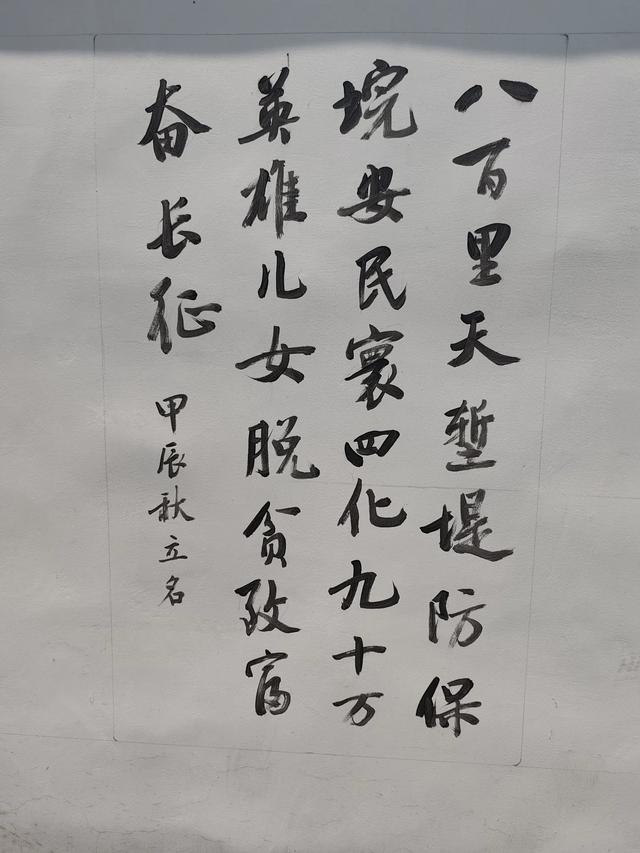 八百里天堑堤防保
垸安民寰四化九十万
英雄儿女脱贫致富
奋长征
甲辰秋立名